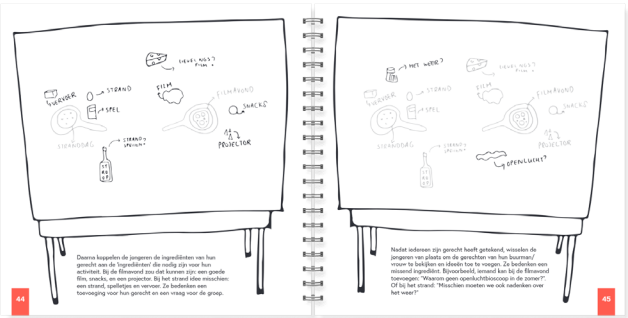 LIEVELINGS?
FILM?
VERVOER
STRAND
FILM
FILMAVOND
SPEL
SNACKS
STRANDDAG
STRAND?
PROJECTOR
Daarna koppelen de jongeren de ingrediënten van hun
gerecht aan de 'ingrediënten' die nodig zijn voor hun
activiteit. Bij de filmavond zou dat kunnen zijn: een goede
film, snacks, en een projector. Bij het strand idee misschien:
een strand, spelletjes en vervoer. Ze bedenken een
toevoeging voor hun gerecht en een vraag voor de groep.
44
HET WEER?
FILM?
VERVOER
STRAND
FILM
FILMAVOND
SPEL
SNACKS
STRANDDAG
PROJECTOR
STRAND?
OPENLUCHT?
Nadat iedereen zijn gerecht heeft getekend, wisselen de
jongeren van plaats om de gerechten van hun buurman/
vrouw te bekijken en ideeën toe te voegen. Ze bedenken een
missend ingrediënt. Bijvoorbeeld, iemand kan bij de filmavond
toevoegen: "Waarom geen openluchtbioscoop in de zomer?".
Of bij het strand: "Misschien moeten we ook nadenken over
het weer?"
45